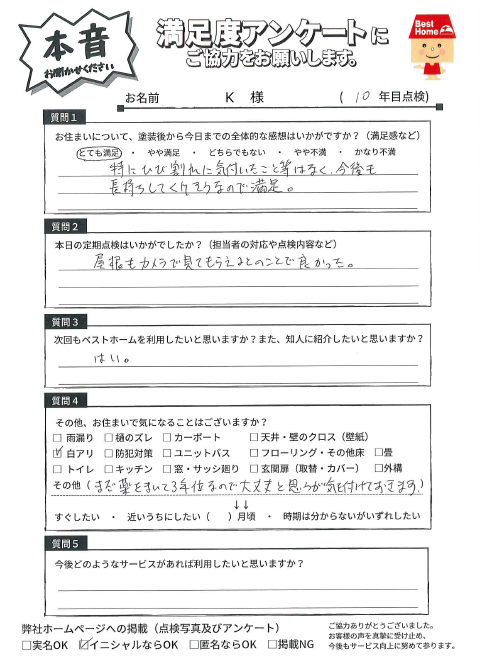 本音
お聞かせください
満足度アンケートに
ご協力をお願いします。
Best Home
お名前 K 様 ( 10 年目点検)
質問1
お住まいについて、塗装後から今日までの全体的な感想はいかがですか?(満足感など)
とても満足 ・ やや満足 ・ どちらでもない ・ やや不満 ・ かなり不満
特にひび割れに気付いること等はなく、今後も
長持ちしてくれそうなので満足。
質問2
本日の定期点検はいかがでしたか?(担当者の対応や点検内容など)
屋根もカメラで見てもらえるとのことで良かった。
質問3
次回もベストホームを利用したいと思いますか?また、知人に紹介したいと思いますか?
はい。
質問4
その他、お住まいで気になることはございますか?
☐ 雨漏り ☐ 樋のズレ ☐ カーポート ☐ 天井・壁のクロス(壁紙)
☑ 白アリ ☐ 防犯対策 ☐ ユニットバス ☐ フローリング・その他床 ☐畳
☐ トイレ ☐ キッチン ☐ 窓・サッシ廻り ☐ 玄関扉(取替・カバー) ☐外構
その他(まだ薬をまいて3年位なので大丈夫と思うが気を付けておきます!)
↓↓
すぐしたい ・ 近いうちにしたい( )月頃 ・ 時期は分からないがいずれしたい
質問5
今後どのようなサービスがあれば利用したいと思いますか?
弊社ホームページへの掲載(点検写真及びアンケート)
☐実名OK ☑イニシャルならOK ☐匿名ならOK ☐掲載NG
ご協力ありがとうございました。
お客様の声を真摯に受け止め、
今後もサービス向上に努めて参ります。